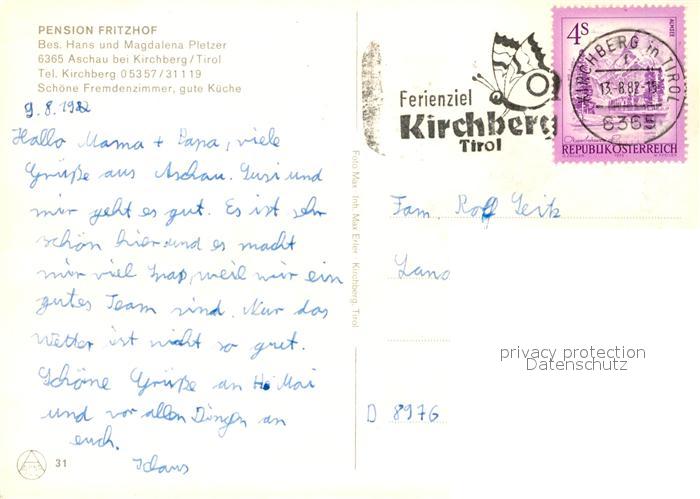 PENSION FRITZHOF
Bes. Hans und Magdalena Pletzer
6365 Aschau bei Kirchberg/Tirol
Tel. Kirchberg 05357/31119
Schöne Fremdenzimmer, gute Küche
9.8.1982
Hallo Mama + Papa, viele
Grüße aus Aschau. Susi und
mir geht es gut. Es ist sehr
schön hier und es macht
mir viel Spaß, weil wir ein
gutes Team sind. Nur das
Wetter ist nicht so gut.
Schöne Grüße an
und vor allen Dingen an
euch.
Klaus
31
Foto Max Inh. Max Erler · Kirchberg, Tirol
Ferienziel
Kirchberg
Tirol
4S
KIRCHBERG in TIROL
13.-8.82-15
6365
REPUBLIK ÖSTERREICH
Fam. Rolf Seitz
D 8976
privacy protection
Datenschutz